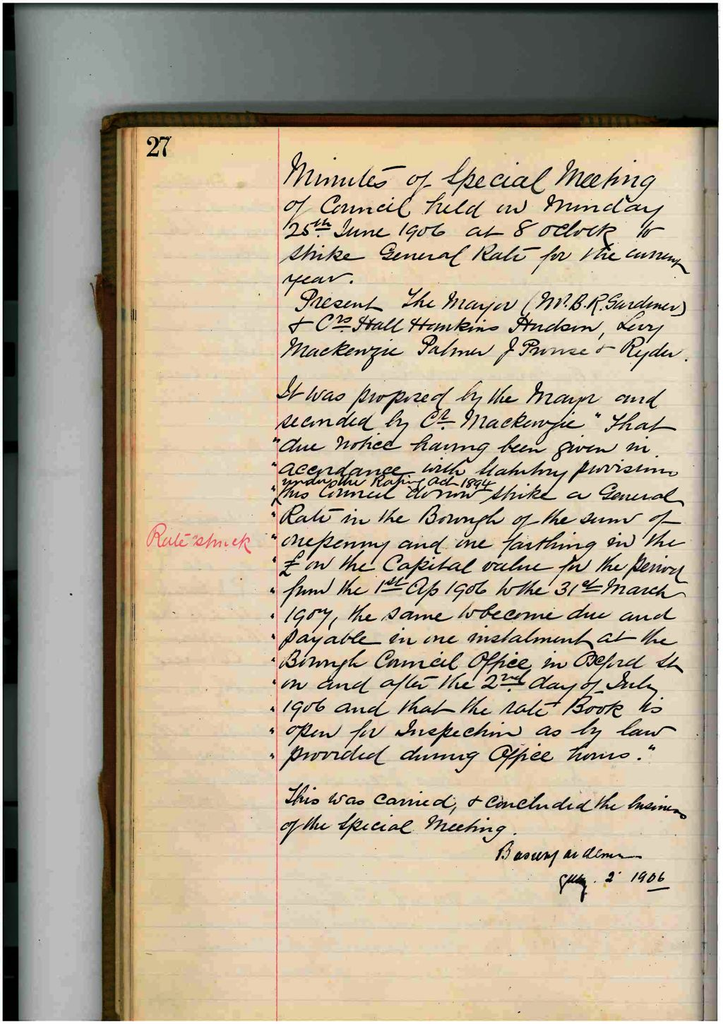 27
Minutes of Special Meeting
of Council held on Monday
25th June 1906 at 8 oclock to
strike General Rate for the current
year.
Present The Mayor (Mr. B. R. Gardener)
& Crs Hall Hawkins Hudson, Levy
Mackenzie Palmer J Prouse & Ryder.
It was proposed by the Mayor and
seconded by Cr. Mackenzie "That
" due notice having been given in
" accordance with Statutory provision
under the Rating Act 1894
" this Council do now strike a General
" Rate in the Borough of the sum of
Rate struck
" onepenny and one farthing in the
" £ on the Capital value for the period
" from the 1st Ap 1906 to the 31st March
" 1907, the same to become due and
" payable in one instalment at the
" Borough Council Office in Oxford St
" on and after the 2nd day of July
" 1906 and that the rate Book is
" open for Inspection as by law
" provided during Office hours."
This was carried, & concluded the business
of the Special Meeting.
July 2 1906